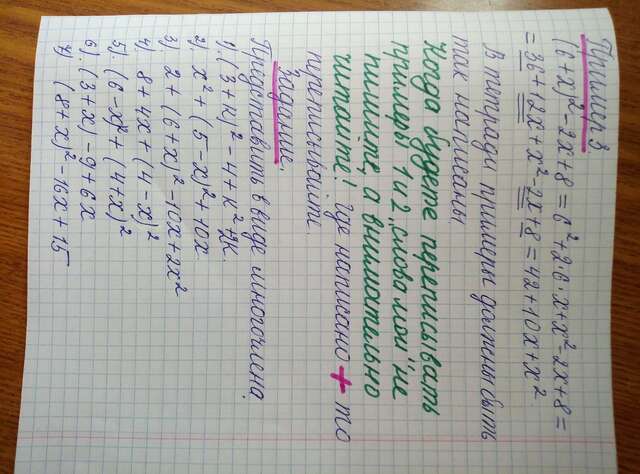 Пример3.
(6+x)²-2x+8=6²+2·6·x+x²-2x+8=
=36+12x+x²-2x+8=42+10x+x².
В тетради примеры должены быть
так написаны
Когда будете переписывать
примеры 1и2, слова мои не
пишите, а внимательно
читайте! Где написано + то
прописывайте.
Задание.
Представить в виде многочлена.
1) (3+к)²-4+к²+2к.
2) x²+(5-x)²+10x
3) 2+(6+x)²-10x+2x²
4) 8+4x+(4-x)²
5). (6-x)²+(4+x)²
6). (3+x)-9+6x
7) (8+x)²-16x+15